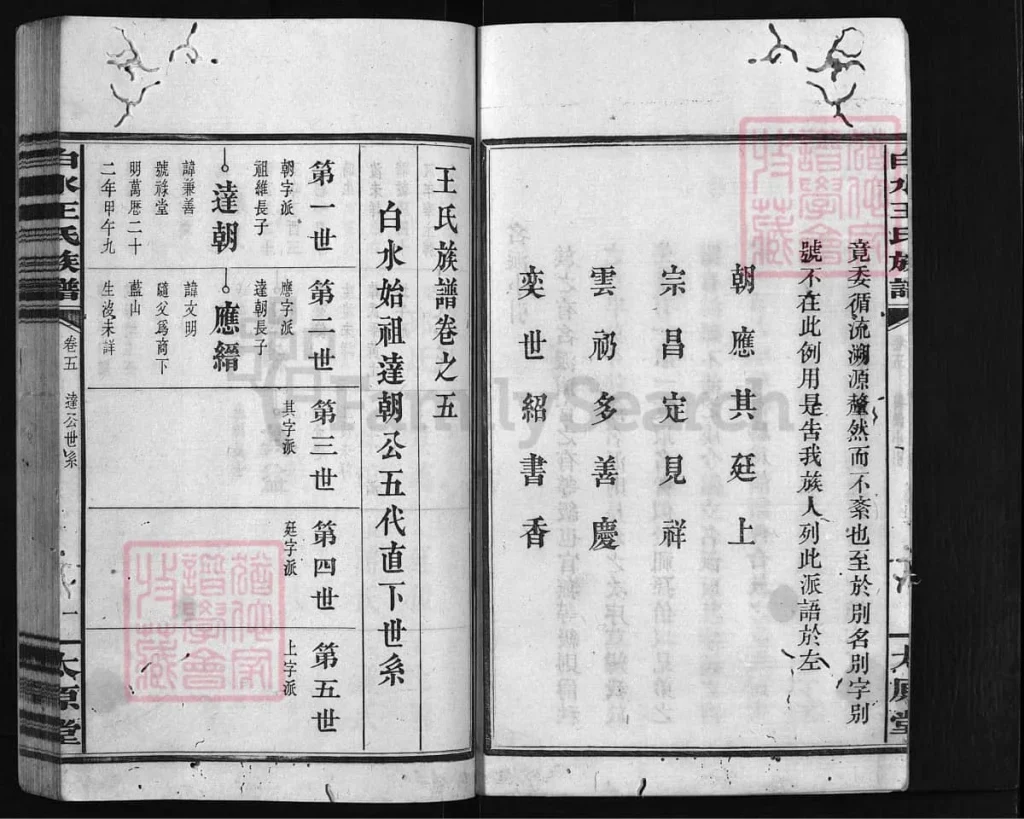 白水王氏族譜
太原堂
竟委循流溯源釐然而不紊也至於別名別字別
號不在此例用是告我族人列此派語於左
朝應其廷上
宗昌定見祥
雲礽多善慶
奕世紹書香
王氏族譜卷之五
白水始祖達朝公五代直下世系
第一世
朝字派
祖維長子
達朝
諱兼善
號祿堂
明萬曆二十
二年甲午九
第二世
應字派
達朝長子
應縉
諱文明
隨父爲商下
藍山
生歿未詳
第三世
其字派
第四世
廷字派
第五世
上字派
白水王氏族譜
卷五
達公世系
一
太原堂
FamilySearch